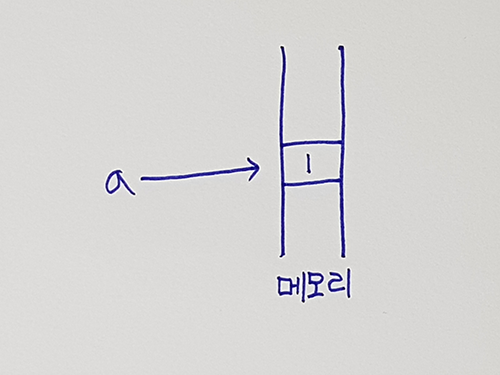 a
1
메모리